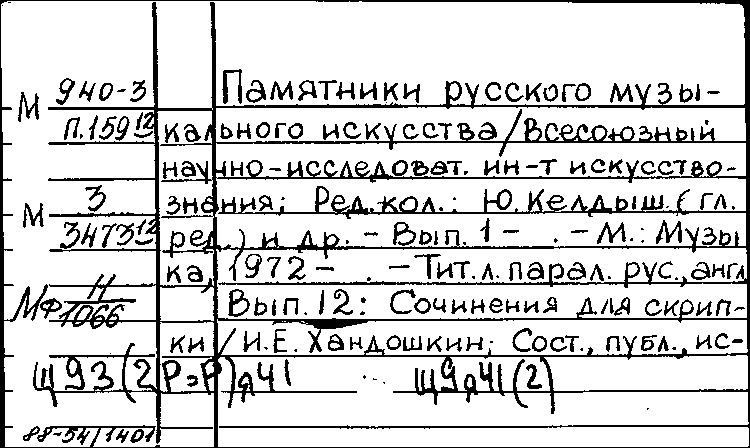 М 940-3 Памятники русского музы-
П.159 12 кального искусства/Всесоюзный
научно-исследоват. ин-т искусство-
М 3 знания; Ред.кол.: Ю.Келдыш (гл.
3473 12 ред.) и др. - Вып. 1 - . - М.: Музы
ка, 1972 - . - Тит.л. парал. рус., англ
МФ Н/1066 Вып. 12: Сочинения для скрип-
ки / И.Е. Хандошкин; Сост., публ., ис-
Щ93(2Р=Р)я41 Щ9я41(2)
88-54/1401